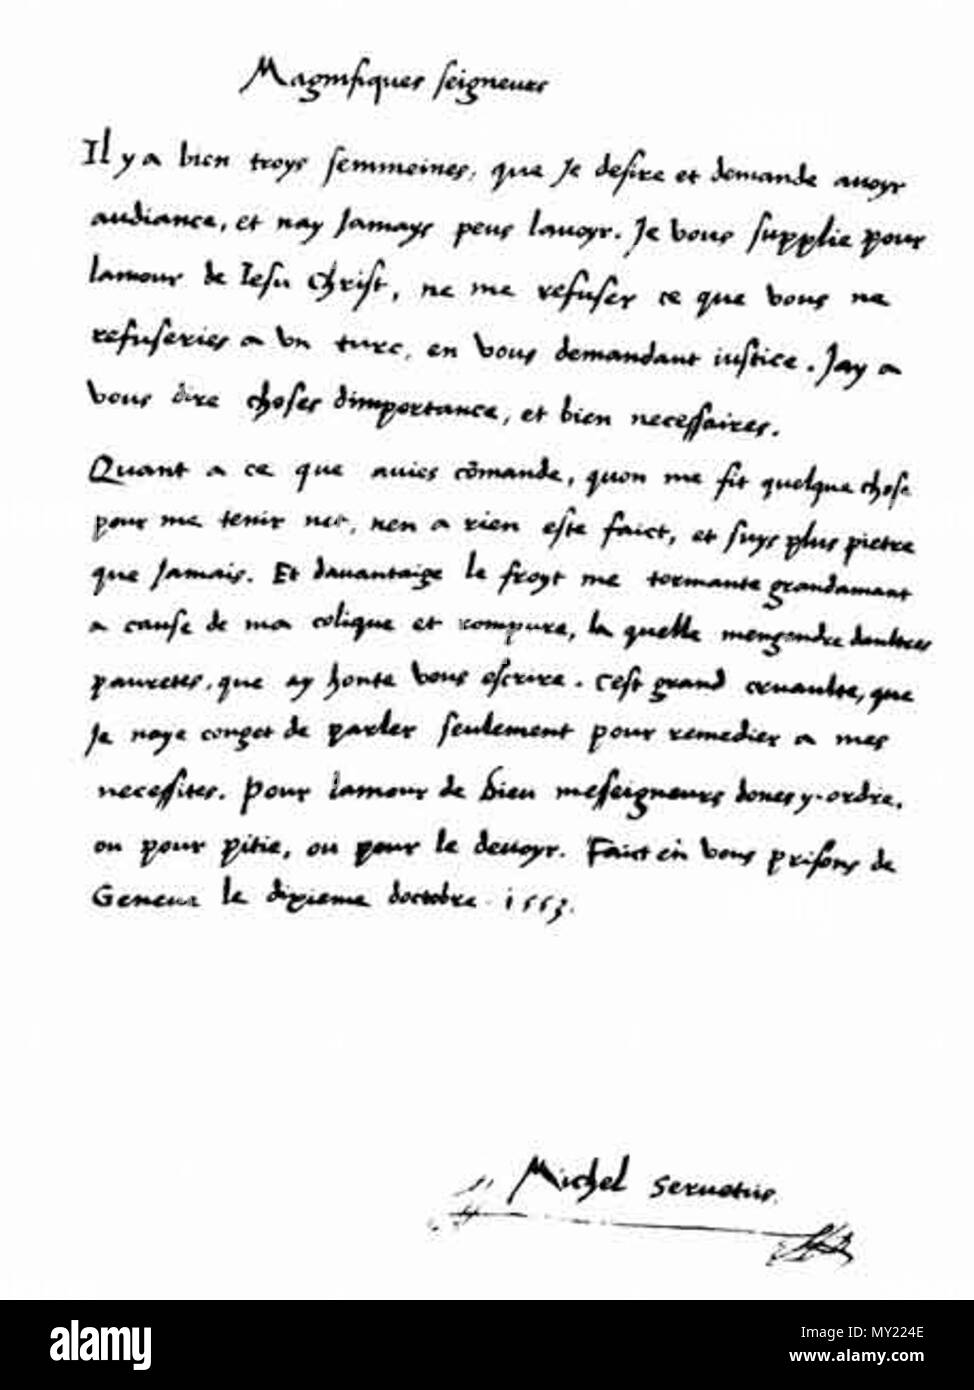 Magnifiques seigneurs
Il y a bien troys semmeines, que Je desire et demande avoyr
audiance, et nay Jamays peus lavoyr. Je vous supplie pour
lamour de Iesu Christ, ne me refuser ce que vous ne
refuseries a vn turc, en vous demandant iustice. Jay a
vous dire choses dimportance, et bien necessaires.
Quant a ce que auies cōmande, quon me fit quelque chose
pour me tenir net, nen a rien este faict, et suys plus pietre
que Jamais. Et dauantaige le froyt me tormante grandamant
a cause de ma colique et rompure, la quelle mengendre daultres
pauretes, que ay honte vous escrire. Cest grand cruaulte, que
Je naye conget de parler seulement pour remedier a mes
necessites. Pour lamour de Dieu messeigneurs dones y ordre,
ou pour pitie, ou pour le deuoyr. Faict en vous prisons de
Geneue le dixieme doctobre 1553.
Michel Seruetus
alamy
Image ID: MY224E
www.alamy.com